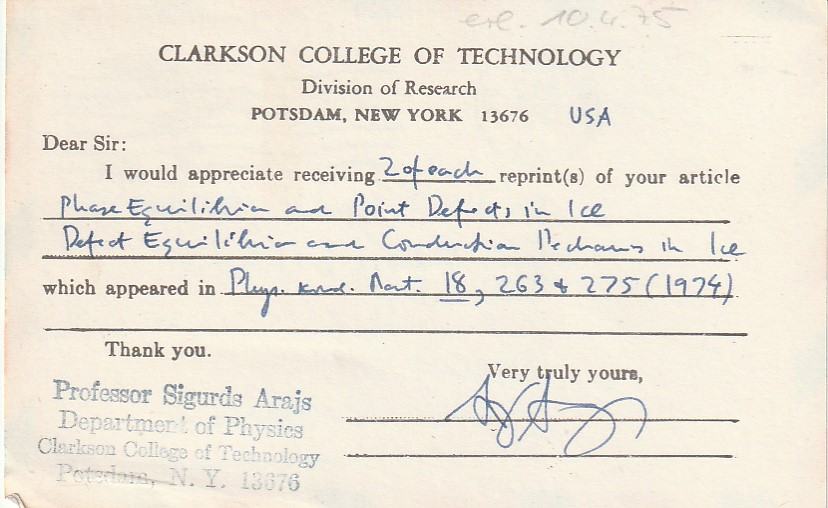 erl. 10.4.75
CLARKSON COLLEGE OF TECHNOLOGY
Division of Research
POTSDAM, NEW YORK 13676 USA
Dear Sir:
I would appreciate receiving 2 of each reprint(s) of your article
Phase Equilibria and Point Defects in Ice
Defect Equilibria and Conduction Mechanisms in Ice
which appeared in Phys. kond. Mat. 18, 263 & 275 (1974)
Thank you.
Very truly yours,
Professor Sigurds Arajs
Department of Physics
Clarkson College of Technology
Potsdam, N. Y. 13676